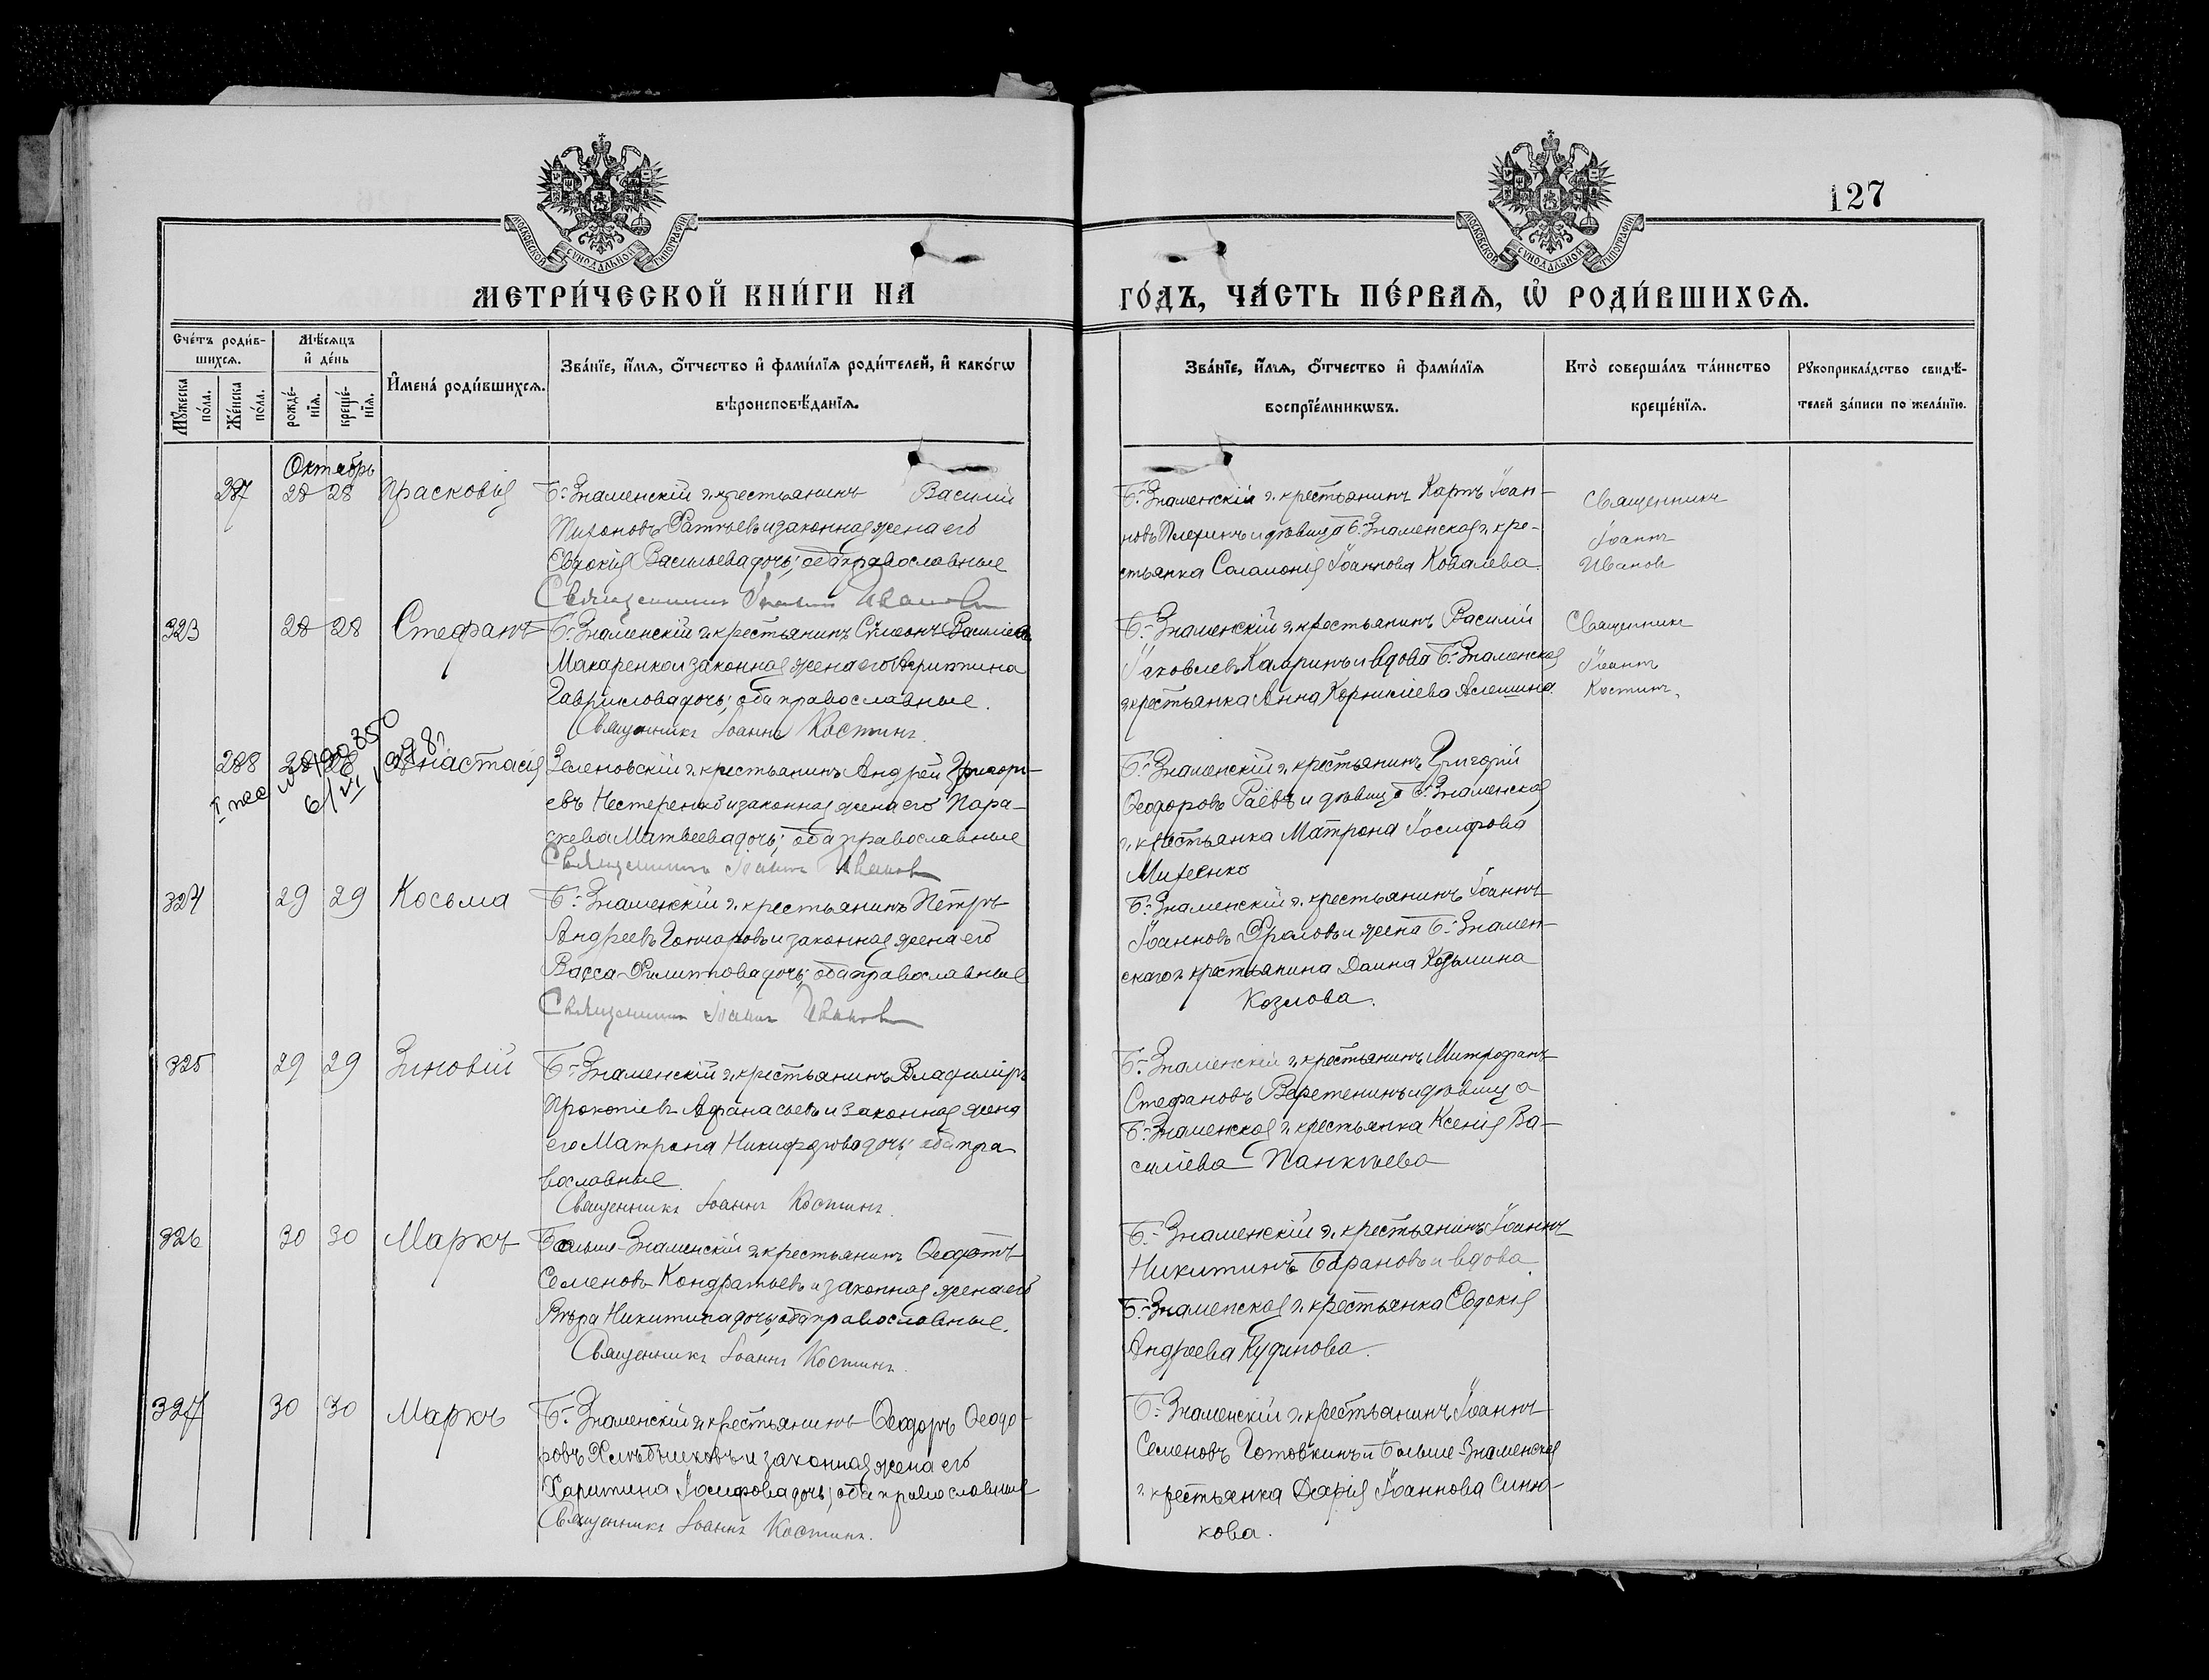 127
МОСКОВСКОЙ СѴНОДАЛЬНОЙ ТИПОГРАФИИ
МОСКОВСКОЙ СѴНОДАЛЬНОЙ ТИПОГРАФИИ
МЕТРИ́ЧЕСКОЙ КНИ́ГИ НА
ГО́ДЪ, ЧА́СТЬ ПЕ́РВАѦ, Ѡ҆ РОДИ́ВШИХСѦ.
Сче́тъ роди́в-
шихсѧ.
Мꙋ́жеска по́ла.
Же́нска по́ла.
Мѣ́сѧцъ
и҆ де́нь
рожде́-
нїѧ.
креще́-
нїѧ.
И҆мена̀ роди́вшихсѧ.
Зва́нїе, и҆́мѧ, ѻ҆́тчество и҆ фами́лїѧ роди́телей, и҆ како́гѡ
вѣроисповѣ́данїѧ.
Зва́нїе, и҆́мѧ, ѻ҆́тчество и҆ фами́лїѧ
воспрїе́мникѡвъ.
Кто̀ соверша́лъ та́инство
креще́нїѧ.
Рꙋкоприкла́дство свидѣ́-
телей за́писи по жела́нїю.
Октябрь
287 28 28 Прасковія Б-Знаменскій г. крестьянинъ Василій
Тихоновъ и законная жена его
Евдокія Васильева дочь; оба православные
Священникъ Іоаннъ Ивановъ
Б-Знаменскій г. крестьянинъ Карпъ Іоан-
новъ и дѣвица Б-Знаменская г. кре-
стьянка Соломонія Іоаннова Ковалева
Священникъ
Іоаннъ
Ивановъ
323 28 28 Стефанъ Б-Знаменскій г. крестьянинъ Сѵмеонъ Василіевъ
Макаренко и законная жена его
Гавриилова дочь; оба православные.
Священникъ Іоаннъ Костинъ.
Б-Знаменскій г. крестьянинъ Василій
Іаковлевъ и вдова Б-Знаменская
г. крестьянка Анна Корниліева Алешина
Священникъ
Іоаннъ
Костинъ.
288 28 28 Анастасія Зеленовскій г. крестьянинъ Андрей Григорі-
евъ Нестеренко и законная жена его Пара-
скева Матвеева дочь; оба православные
Священникъ Іоаннъ Ивановъ
Б-Знаменскій г. крестьянинъ Григорій
Ѳеодоровъ Раевъ и дѣвица Б-Знаменская
г. крестьянка Матрона Іосифова
Михеенко
324 29 29 Косьма Б-Знаменскій г. крестьянинъ Петръ
Андреевъ Гончаровъ и законная жена его
Васса Филиппова дочь; оба православные
Священникъ Іоаннъ Ивановъ
Б-Знаменскій г. крестьянинъ Іоаннъ
Іоанновъ Фроловъ и жена Б-Знамен-
скаго г. крестьянина Домна Козьмина
Козлова.
325 29 29 Зиновій Б-Знаменскій г. крестьянинъ Владиміръ
Прокопіевъ Афанасьевъ и законная жена
его Матрона Никифорова дочь; оба пра-
вославные
Священникъ Іоаннъ Костинъ.
Б-Знаменскій г. крестьянинъ Митрофанъ
Стефановъ Веретенинъ и дѣвица
Б-Знаменская г. крестьянка Ксенія Ва-
силіева Панкѣева
326 30 30 Маркъ Больше-Знаменскій г. крестьянинъ Ѳеодотъ
Семеновъ Кондратьевъ и законная жена его
Вѣра Никитина дочь; оба православные.
Священникъ Іоаннъ Костинъ.
Б-Знаменскій г. крестьянинъ Іоаннъ
Никитинъ Барановъ и вдова
Б-Знаменская г. крестьянка Евдокія
Андреева Кудинова.
327 30 30 Маркъ Б-Знаменскій г. крестьянинъ Ѳеодоръ Ѳеодо-
ровъ и законная жена его
Харитина Іосифова дочь; оба православные
Священникъ Іоаннъ Костинъ.
Б-Знаменскій г. крестьянинъ Іоаннъ
Семеновъ Готовкинъ и Больше-Знаменская
г. крестьянка Дарія Іоаннова Синю-
кова.